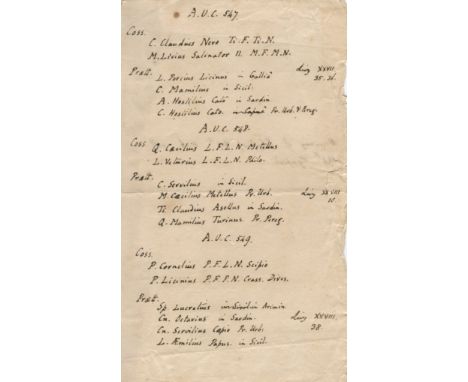 A.U.C. 547
Coss.
C. Claudius Nero Ti. F. Ti. N.
M. Livius Salinator II. M. F. M. N.
Prætt.
L. Porcius Licinus in Galliâ Livy XXVII
C. Mamilius in Sicil. 35. 36.
A. Hostilius Cato in Sardin
C. Hostilius Cato. Pr. Urb. & Pereg.
A.U.C. 548.
Coss Q. Cæcilius L. F. L. N. Metellus
L. Veturius L. F. L. N. Philo.
Prætt.
C. Servilius in Sicil.
M Cæcilius Metellus Pr. Urb. Livy XXVIII
Ti. Claudius Asellus in Sardin. 10.
Q. Mamilius Turinus Pr. Pereg.
A.U.C. 549.
Coss.
P. Cornelius P. F. L. N. Scipio
P. Licinius P. F. P. N. Crass. Dives.
Prætt.
Sp. Lucretius in Arimin
Cn. Octavius in Sardin. Livy XXVIII.
Cn. Servilius Cæpio Pr. Urb. 38.
L. Æmilius Papus. in Sicil.